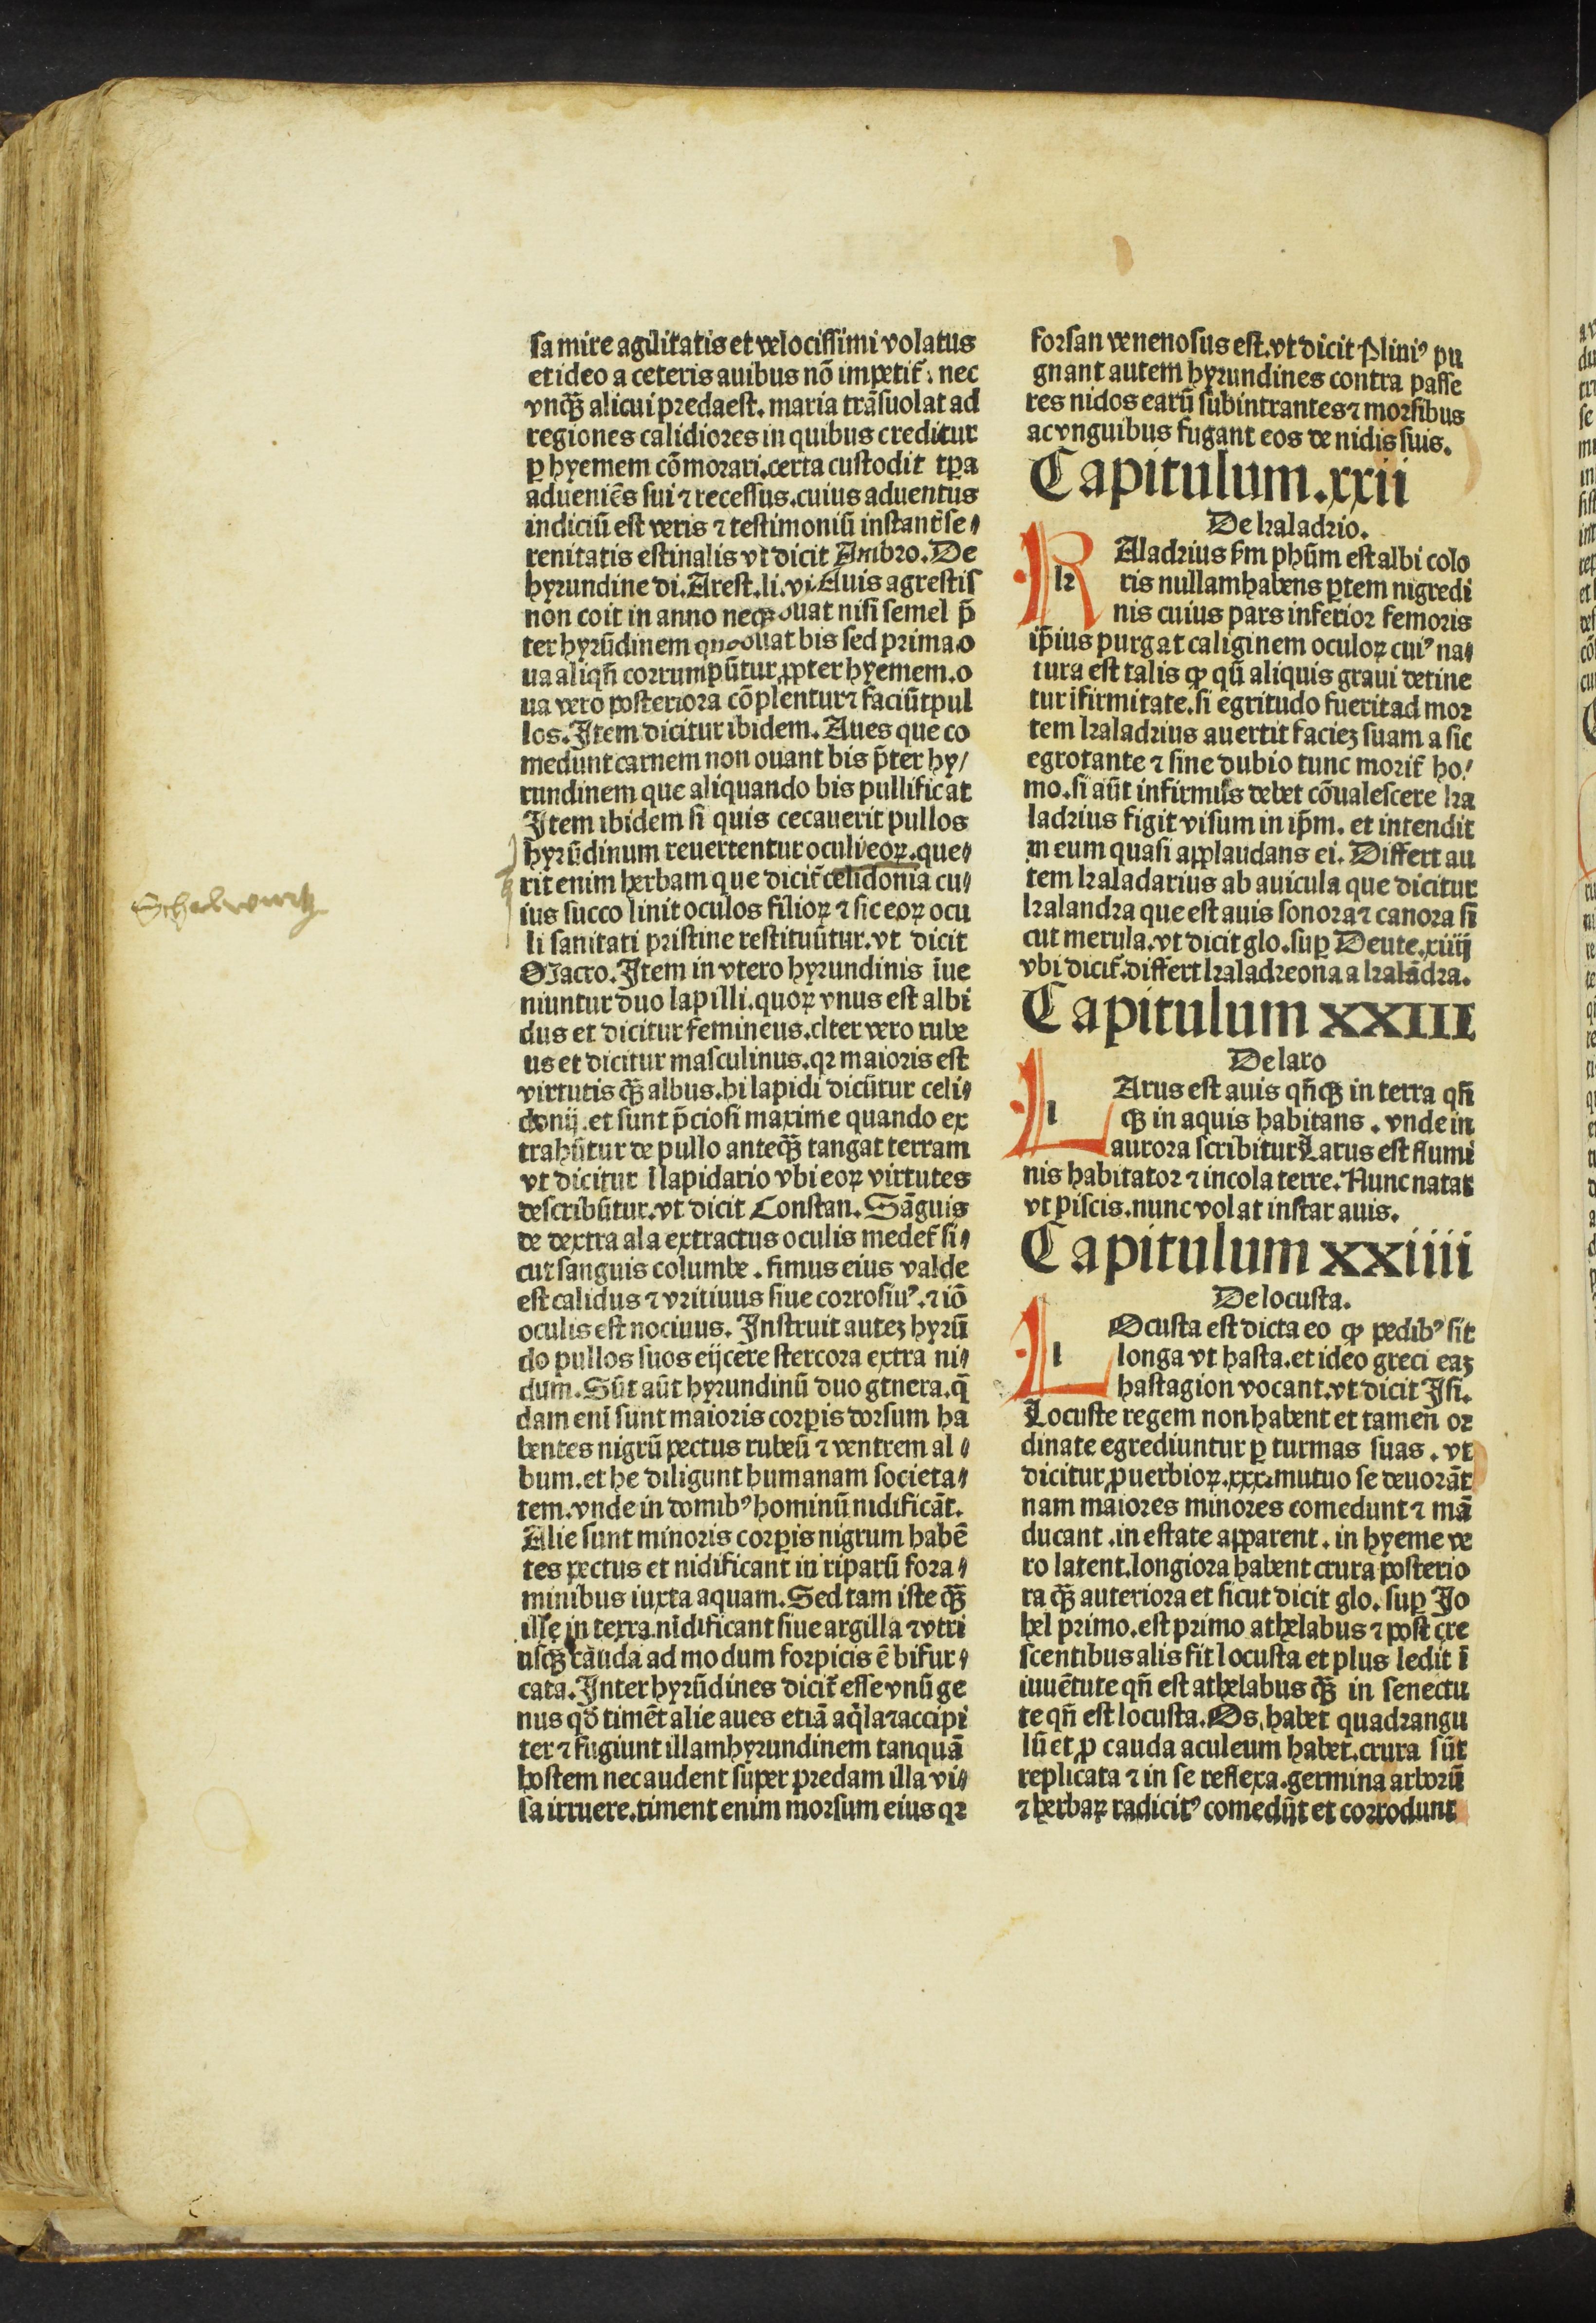 sa mire agilitatis et velocissimi volatus
et ideo a ceteris auibus nō impetit᷑. nec
vnqȝ̄ alicui preda est. maria trāsuolat ad
regiones calidiores in quibus creditur
ꝑ hyemem cōmorari. certa custodit tꝑa
adueniēs sui ⁊ recessus. cuius aduentus
indiciū est veris ⁊ testimoniū instant᷑ se⸗
renitatis estiualis vt dicit Ambro. De
hyrundine di. Arest. li. vi. Auis agrestis
non coit in anno neqȝ ouat nisi semel p̄
ter hyrūdinem que ouat bis sed prima o
ua aliqn̄ corrumpūtur ꝓpter hyemem. o
ua vero posteriora cōplentur ⁊ faciūt pul
los. Item dicitur ibidem. Aues que co
medunt carnem non ouant bis p̄ter hy/
rundinem que aliquando bis pullificat
Item ibidem si quis cecauerit pullos
hyrūdinum reuertentur oculi eoꝝ. que⸗
rit enim herbam que dicit᷑ celidonia cu⸗
Schelwurtz
ius succo linit oculos filioꝝ ⁊ sic eoꝝ ocu
li sanitati pristine restituūtur. vt dicit
Macro. Item in vtero hyrundinis īue
niuntur duo lapilli. quoꝝ vnus est albi
dus et dicitur femineus. clter vero rube
us et dicitur masculinus. qꝛ maioris est
virtutis qȝ̄ albus. hi lapidi dicūtur celi⸗
donij. et sunt p̄ciosi maxime quando ex
trahūtur de pullo anteqȝ̄ tangat terram
vt dicitur ī lapidario vbi eoꝝ virtutes
describūtur. vt dicit Constan. Sāguis
de dextra ala extractus oculis medet᷑ si⸗
cut sanguis columbe. fimus eius valde
est calidus ⁊ vritiuus siue corrosiuꝰ. ⁊ iō
oculis est nociuus. Instruit auteȝ hyrū
do pullos suos eijcere stercora extra ni⸗
dum. Sūt aūt hyrundinū duo gtnera. q̄
dam eni sunt maioris corꝑis dorsum ha
bentes nigrū pectus rubeū ⁊ ventrem al⸗
bum. et he diligunt humanam societa⸗
tem. vnde in domibꝰ hominū nidificāt.
Alie sunt minoris corꝑis nigrum habē
tes pectus et nidificant in riparū fora⸗
minibus iuxta aquam. Sed tam iste qȝ̄
ille in terra nidificant siue argilla ⁊ vtri
usqȝ cauda ad modum forpicis ē bifur⸗
cata. Inter hyrūdines dicit᷑ esse vnū ge
nus qd̄ timēt alie aues etiā aq̇la ⁊ accipi
ter ⁊ fugiunt illam hyrundinem tanquā
hostem nec audent super predam illa vi⸗
sa irruere. timent enim morsum eius qꝛ
forsan venenosus est. vt dicit Pliniꝰ pu
gnant autem hyrundines contra passe
res nidos earū subintrantes ⁊ morsibus
ac vnguibus fugant eos de nidis suis.
Capitulum. xxii
De kaladrio.
k Aladrius ẜm phūm est albi colo
ris nullam habens ꝑtem nigredi
nis cuius pars inferior femoris
ip̄ius purgat caliginem oculoꝝ cuiꝰ na⸗
tura est talis ꝙ qū aliquis graui detine
tur ifirmitate. si egritudo fuerit ad mor
tem kaladrius auertit facieȝ suam a sic
egrotante ⁊ sine dubio tunc morit᷑ ho⸗
mo. si aūt infirmus debet cōualescere ka
ladrius figit visum in ip̄m. et intendit
in eum quasi applaudans ei. Differt au
tem kaladarius ab auicula que dicitur
kalandra que est auis sonora ⁊ canora si
cut merula. vt dicit glo. suꝑ Deute. xiiij
vbi dicit᷑. differt kaladreona a kalādra.
Capitulum XXIII
De laro
l Arus est auis qn̄qȝ in terra qn̄
qȝ in aquis habitans. vnde in
aurora scribitur Larus est flumi
nis habitator ⁊ incola terre. Nunc natat
vt piscis. nunc volat instar auis.
Capitulum xxiiii
De locusta.
l Ocusta est dicta eo ꝙ pedibꝰ sit
longa vt hasta. et ideo greci eaȝ
hastagion vocant. vt dicit Isi.
Locuste regem non habent et tamen or
dinate egrediuntur ꝑ turmas suas. vt
dicitur ꝓuerbioꝝ. xxx. mutuo se deuorāt
nam maiores minores comedunt ⁊ mā
ducant. in estate apparent. in hyeme ve
ro latent. longiora habent crura posterio
ra qȝ̄ auteriora et sicut dicit glo. suꝑ Jo
hel primo. est primo athelabus ⁊ post cre
scentibus alis fit locusta et plus ledit ī
iuuētute qn̄ est athelabus qȝ̄ in senectu
te qn̄ est locusta. Os habet quadrangu
lū et ꝓ cauda aculeum habet. crura sūt
replicata ⁊ in se reflexa. germina arborū
⁊ herbaꝝ radicitꝰ comedūt et corrodunt